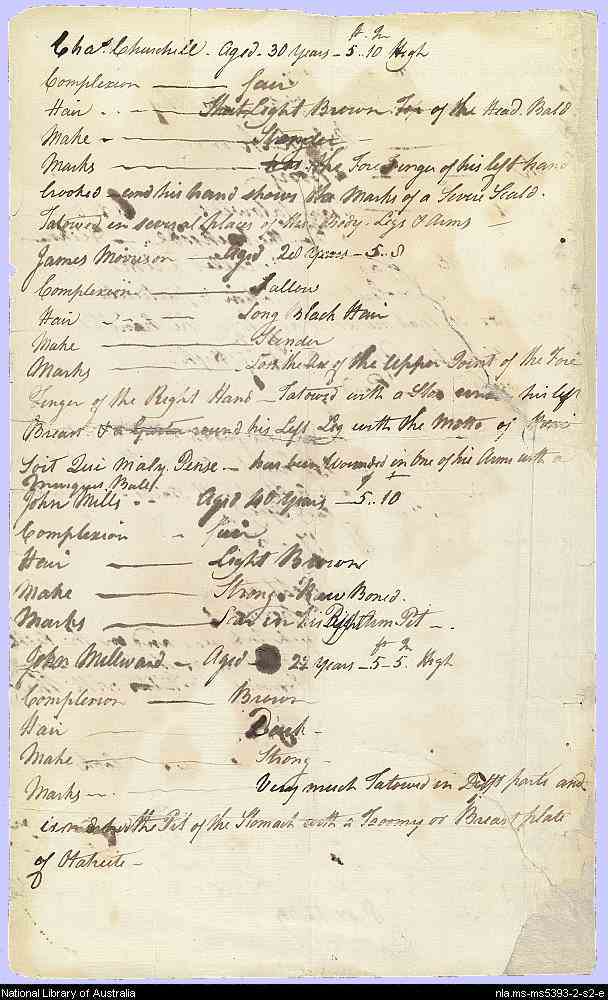 ft. In
Chas. Churchill. Aged - 30 Years - 5..10 High
Complexion —— fair
Hair - Short Light Brown Top of the Head Bald
Make - —— Slender
Marks —— the Fore Finger of his left hand
Crooked - and his hand shows the Marks of a Severe Scald.
Tatowed in several places of his Body. Legs & Arms —
James Morrison — Aged 28 Years — 5..8
Complexion —— Sallow
Hair - —— Long black Hair
Make —— Slender
Marks —— the Use of the Upper Joint of the Fore
Finger of the Right Hand - Tatowed with a Star his left
Breast & a Garter round his Left Leg with the Motto of Honi
Soit Qui Mal y Pense - has been Wounded in One of his Arms with a
Musquet Ball
John Mills - - Aged 40 Years — 5..10
Complexion - fair
Hair —— Light Brown
Make —— Strong - Raw Boned.
Marks —— Scar in his Right Arm Pit -
ft In
John Millward - Aged 22 Years - 5-5. High
Complexion —— Brown
Hair —— Dark -
Make —— Strong -
Marks - Very much Tatowed in Difft parts and
the Pit of the Stomach with a Taoomy or Breast plate
of Otaheite -
National Library of Australia
nla.ms-ms5393-2-s2-e